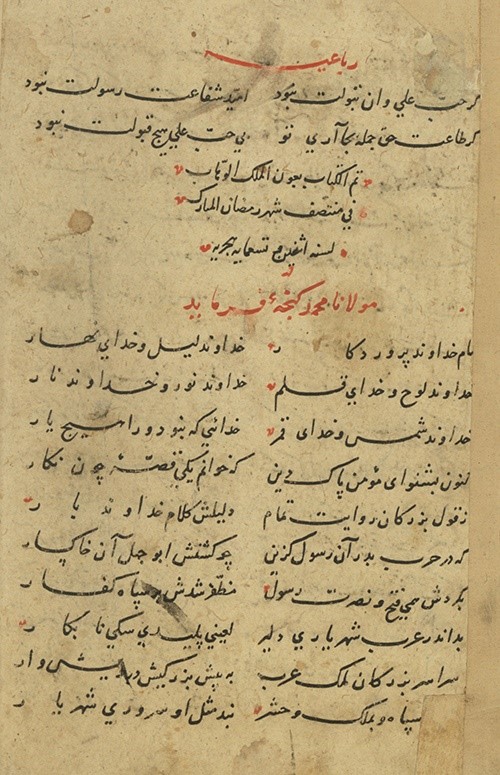 رباعیه
گر حبّ علی وان نبولت نبود امید شفاعت رسولت نبود
گر طاعت حقّ جمله بجا آری تو بی حبّ علی هیچ قبولت نبود
تم الکتاب بعون الملک الوهاب
فی منتصف شهر رمضان المبارک
لسنه اثنین و تسعمایه هجریه
مولانا محمد کنجهٔ فرماید
بنام خداوند پروردکار خداوند لیل و خدای نهار
خداوند لوح و خدای قلم خداوند نور و خداوند نار
خداوند شمس و خدای قمر خدائی که نبود ورا هیچ یار
کنون بشنو ای مؤمن پاک دین که خوانم یکی قصّهٔ چون نکار
ز قول بزرکان روایت تمام دلیلش کلام خداوند بار
که در حرب بدر آن رسول کزین چو کشتش ابوجهل آن خاکسار
بکردش همی فتح و نصرت رسول مظفّر شدش بر سپاه کفار
بد اندر عرب شهریاری دلیر لعینی پلیدی سکی نابکار
سراسر بزرکان ملک عرب به پیش بزرکیش درویش وار
سپاه و بملک و حشر نبد مثل او سروری شهریار